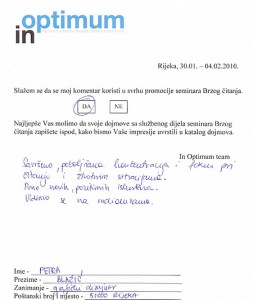 in optimum
Rijeka, 30.01. – 04.02.2010.
Slažem se da se moj komentar koristi u svrhu promocije seminara Brzog čitanja.
DA NE
Najljepše Vas molimo da svoje dojmove sa službenog dijela seminara Brzog
čitanja zapišete ispod, kako bismo Vaše impresije uvrstili u katalog dojmova.
In Optimum team
Savršeno, poboljšana koncentracija i fokus pri
čitanju i životnim situacijama.
Puno novih, pozitivnih iskustava.
Vidimo se na
Ime – PETRA
Prezime – BLAŽIĆ
Zanimanje – grafički dizajner
Poštanski broj i mjesto – 51000 RIJEKA